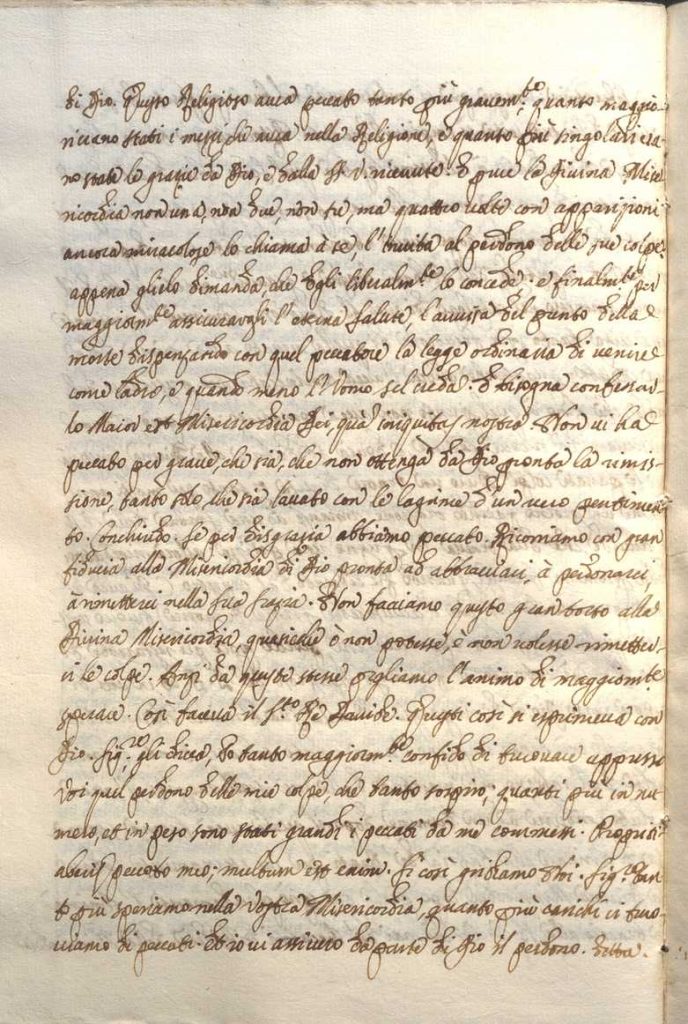 di Dio. Questo Religioso avea peccato tanto più gravem.te quanto maggio-
ri erano stati i mezzi, che avea nella Religione, e quanto più singolari era-
no state le grazie da Dio, e dalla SS. V. ricevute. E pure la Divina Mise-
ricordia non una, non due, non tre, ma quattro volte con apparizioni
ancora miracolose lo chiama à se, l'invita al perdono delle sue colpe:
appena glielo dimanda, che Egli liberalm.te lo concede. e finalm.te per
maggiorm.te assicurargli l'eterna salute, l'avvisa del punto della
morte dispensando con quel peccatore la legge ordinaria di venire
come ladro, e quando meno l'Uomo sel creda. E bisogna confessar-
lo Maior est Misericordia Dei, quà iniquitas nostra. Non vi ha
peccato per grave, che sia, che non ottenga da Dio pronta la remis-
sione, tanto solo, che sia lavato con le lagrime d'un vero pentimen-
to. Conchiudo. Se per disgrazia abbiamo peccato. Ricorriamo con gran
fiducia alla Misericordia di Dio pronta ad abbracciarci, à perdonarci,
à rimetterci nella sua grazia. Non facciamo questo gran torto alla
Divina Misericordia, quasiche ò non potesse, ò non volesse rimetter-
ci le colpe. Anzi da queste stesse pigliamo l'animo di maggiorm.te
sperare. Così faceva il S.to Rè Davide. Questi così si esprimeva con
Dio. Sig.re gli dicea, Io tanto maggiorm.te confido di trovare appresso
Voi quel perdono delle mie colpe, che tanto sospiro, quanti più in nu-
mero, et in peso sono stati grandi i peccati da me commessi. Propiti-
aberis peccato meo; multum est enim. Sì così gridiamo Noi. Sig.re tan-
to più speriamo nella Vostra Misericordia, quanto più carichi ci tro-
viamo di peccati. Et io vi assicuro da parte di Dio il perdono.